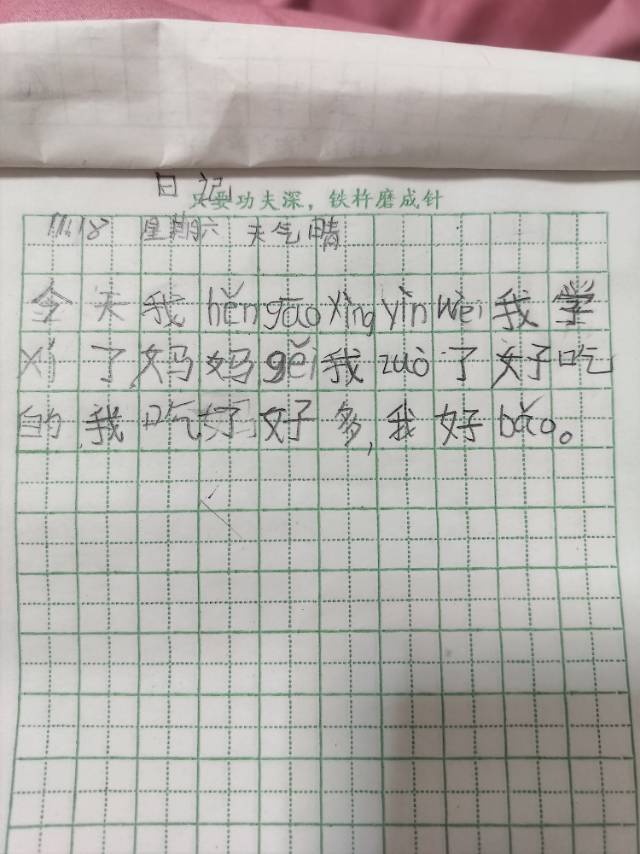 日记
只要功夫深，铁杵磨成针
11.18 星期六 天气晴
今天我hěn gāo xìng yīn wèi我学
xí了妈妈gěi我zuò了好吃
的,我吃了好多,我好bǎo。